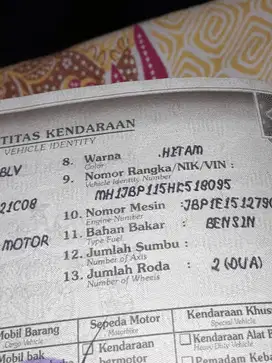 TITAS KENDARAAN
VEHICLE IDENTITY
BLV
8. Warna : HITAM
Color
9. Nomor Rangka/NIK/VIN :
Vehicle Identity Number
MH1JBP115HK518095
21C08
10. Nomor Mesin : JBP1E1512790
Engine Number
MOTOR
11. Bahan Bakar : BENSIN
Type Fuel
12. Jumlah Sumbu :
Number of Axis
13. Jumlah Roda : 2 (DUA)
Number of Wheels
Mobil Barang
Cargo Vehicle
Sepeda Motor
Motorbike
Kendaraan Khus
Special Vehicle
Mobil bak
Kendaraan
bermotor
Kendaraan Alat B
Heavy Duty Vehicle
Pemadam Keba